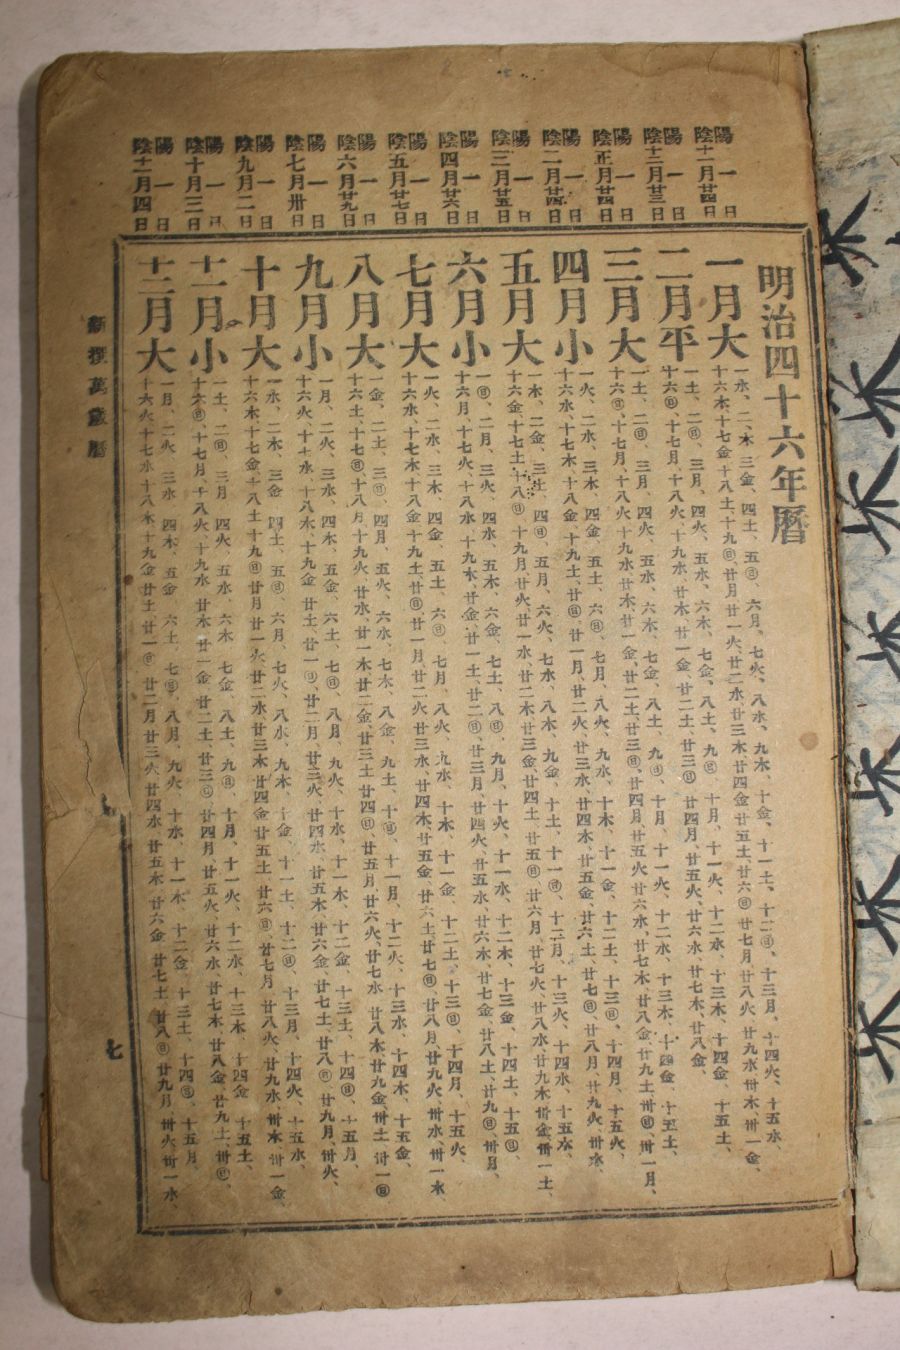 陽一日
陰十一月廿四日
陽一日
陰十二月廿三日
陽一日
陰正月廿四日
陽一日
陰二月廿四日
陽一日
陰三月廿五日
陽一日
陰四月廿六日
陽一日
陰五月廿七日
陽一日
陰六月廿九日
陽一日
陰七月卅日
陽一日
陰九月二日
陽一日
陰十月三日
陽一日
陰十一月四日
明治四十六年曆
一月大
一水、二木、三金、四土、五㊐、六月、七火、八水、九木、十金、十一土、十二㊐、十三月、十四火、十五水、
十六木、十七金、十八土、十九㊐、廿月、廿一火、廿二水、廿三木、廿四金、廿五土、廿六㊐、廿七月、廿八火、廿九水、卅木、卅一金、
二月平
一土、二㊐、三月、四火、五水、六木、七金、八土、九㊐、十月、十一火、十二水、十三木、十四金、十五土、
十六㊐、十七月、十八火、十九水、廿木、廿一金、廿二土、廿三㊐、廿四月、廿五火、廿六水、廿七木、廿八金、
三月大
一土、二㊐、三月、四火、五水、六木、七金、八土、九㊐、十月、十一火、十二水、十三木、十四金、十五土、
十六㊐、十七月、十八火、十九水、廿木、廿一金、廿二土、廿三㊐、廿四月、廿五火、廿六水、廿七木、廿八金、廿九土、卅㊐、卅一月、
四月小
一火、二水、三木、四金、五土、六㊐、七月、八火、九水、十木、十一金、十二土、十三㊐、十四月、十五火、
十六水、十七木、十八金、十九土、廿㊐、廿一月、廿二火、廿三水、廿四木、廿五金、廿六土、廿七㊐、廿八月、廿九火、卅水、
五月大
一木、二金、三土、四㊐、五月、六火、七水、八木、九金、十土、十一㊐、十二月、十三火、十四水、十五木、
十六金、十七土、十八㊐、十九月、廿火、廿一水、廿二木、廿三金、廿四土、廿五㊐、廿六月、廿七火、廿八水、廿九木、卅金、卅一土、
六月小
一㊐、二月、三火、四水、五木、六金、七土、八㊐、九月、十火、十一水、十二木、十三金、十四土、十五㊐、
十六月、十七火、十八水、十九木、廿金、廿一土、廿二㊐、廿三月、廿四火、廿五水、廿六木、廿七金、廿八土、廿九㊐、卅月、
七月大
一火、二水、三木、四金、五土、六㊐、七月、八火、九水、十木、十一金、十二土、十三㊐、十四月、十五火、
十六水、十七木、十八金、十九土、廿㊐、廿一月、廿二火、廿三水、廿四木、廿五金、廿六土、廿七㊐、廿八月、廿九火、卅水、卅一木、
八月大
一金、二土、三㊐、四月、五火、六水、七木、八金、九土、十㊐、十一月、十二火、十三水、十四木、十五金、
十六土、十七㊐、十八月、十九火、廿水、廿一木、廿二金、廿三土、廿四㊐、廿五月、廿六火、廿七水、廿八木、廿九金、卅土、卅一㊐
九月小
一月、二火、三水、四木、五金、六土、七㊐、八月、九火、十水、十一木、十二金、十三土、十四㊐、十五月、
十六火、十七水、十八木、十九金、廿土、廿一㊐、廿二月、廿三火、廿四水、廿五木、廿六金、廿七土、廿八㊐、廿九月、卅火、
十月大
一水、二木、三金、四土、五㊐、六月、七火、八水、九木、十金、十一土、十二㊐、十三月、十四火、十五水、
十六木、十七金、十八土、十九㊐、廿月、廿一火、廿二水、廿三木、廿四金、廿五土、廿六㊐、廿七月、廿八火、廿九水、卅木、卅一金、
十一月小
一土、二㊐、三月、四火、五水、六木、七金、八土、九㊐、十月、十一火、十二水、十三木、十四金、十五土、
十六㊐、十七月、十八火、十九水、廿木、廿一金、廿二土、廿三㊐、廿四月、廿五火、廿六水、廿七木、廿八金、廿九土、卅㊐、
十二月大
一月、二火、三水、四木、五金、六土、七㊐、八月、九火、十水、十一木、十二金、十三土、十四㊐、十五月、
十六火、十七水、十八木、十九金、廿土、廿一㊐、廿二月、廿三火、廿四水、廿五木、廿六金、廿七土、廿八㊐、廿九月、卅火、卅一水、
新撰萬歲曆
七